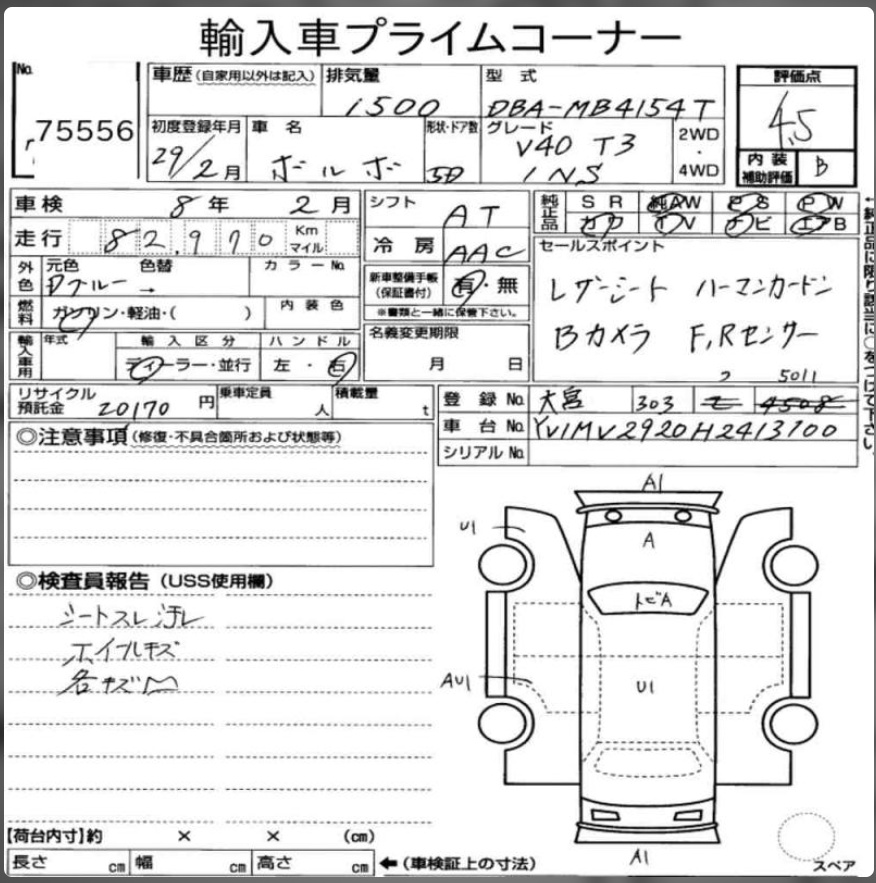 輸入車プライムコーナー
No. 75556
車歴（自家用以外は記入） 排気量 1500
型式 DBA-MB4154T
評価点 4.5
初度登録年月 29/2月
車名 ボルボ
形状・ドア数 5D
グレード V40 T3 INS
2WD・4WD
内装補助評価 B
車検 8年 2月
走行 82,970 Km マイル
外色 元色 Dブルー 色替 → カラーNo.
燃料 ガソリン・軽油・( ) 内装色
輸入車用 年式 輸入区分 ディーラー・並行 ハンドル 左・右
シフト AT
冷房 AAC
新車整備手帳（保証書付） 有・無
※書類と一緒に保管下さい。
名義変更期限 月 日
純正品 SR 純AW PS PW
カワ TV ナビ エアB
セールスポイント
レザーシート ハーマンカードン
Bカメラ F,Rセンサー
←純正品に限り該当に○をつけて下さい。
リサイクル預託金 20170円 乗車定員 人 積載量 t
2 5011
登録No. 大宮 303 4508
車台No. YV1MV2920H2413700
シリアルNo.
◎注意事項（修復・不具合箇所および状態等）
◎検査員報告（USS使用欄）
シートスレ汚レ
ホイルキズ
各キズ凹
A1
U1
A
トビA
AU1
U1
A1
スペア
【荷台内寸】約 × × (cm)
長さ cm 幅 cm 高さ cm ←（車検証上の寸法）